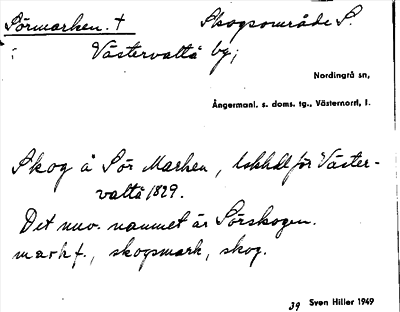 Sörmarken. † Skogsområde S.
i Västervattå by;
Nordingrå sn,
Ångermanl. s. doms. tg., Västernorrl. l.
Skog å Sör Marken, lskhdl för Väster-
vattå 1829.
Det nuv. namnet är Sörskogen.
mark f., skogsmark, skog.
39 Sven Hiller 1949